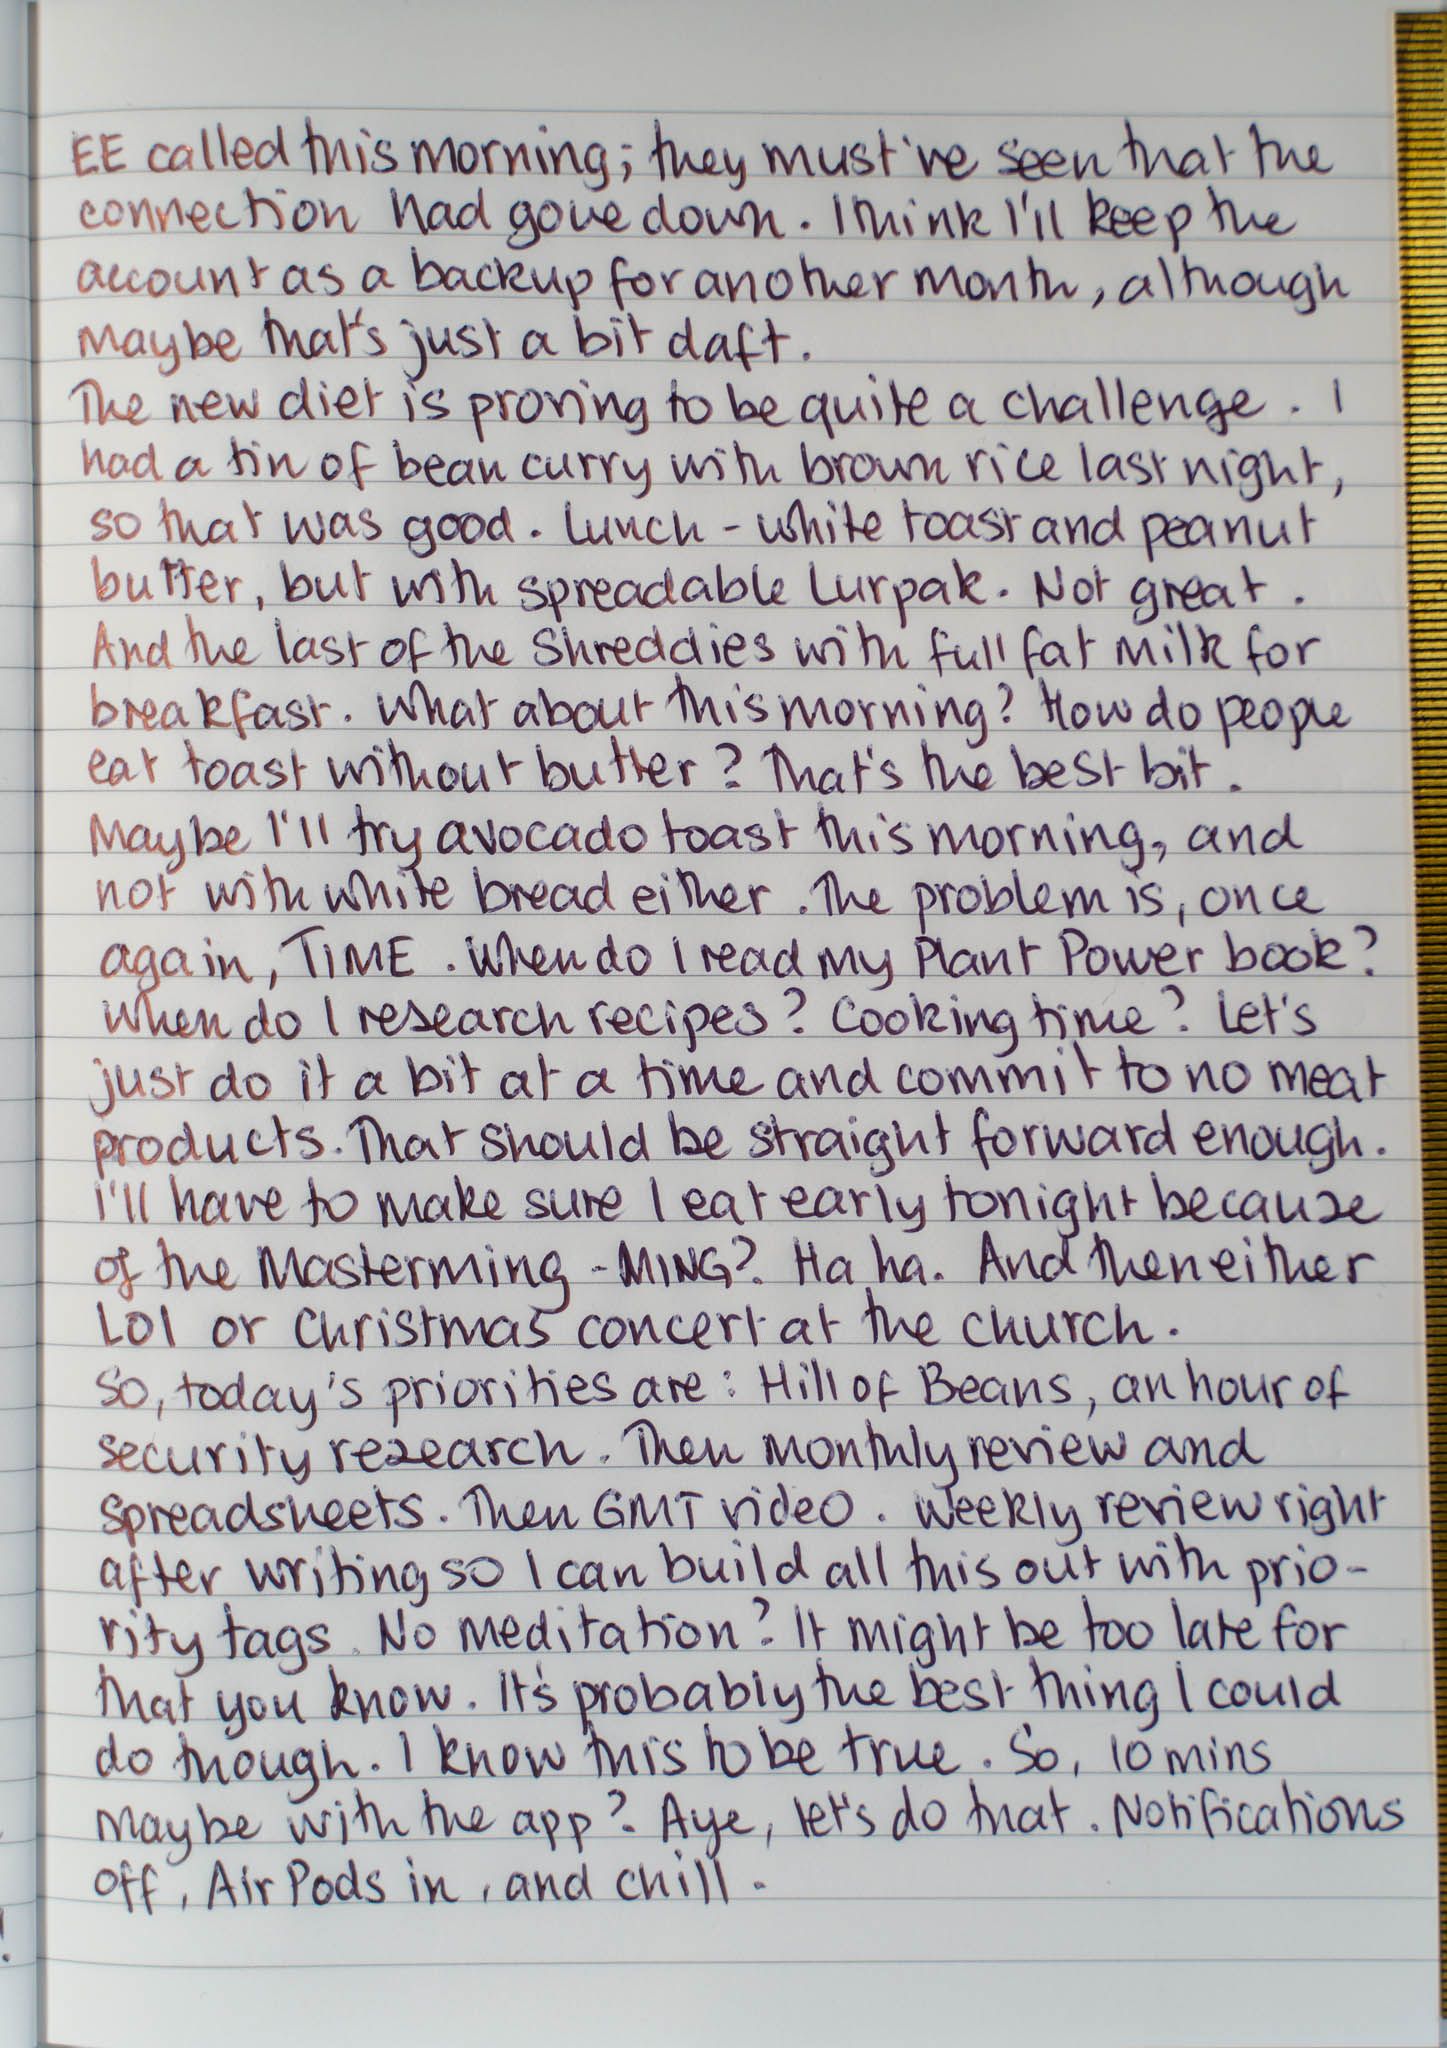 EE called this morning; they must've seen that the
connection had gone down. I think I'll keep the
account as a backup for another month, although
maybe that's just a bit daft.
The new diet is proving to be quite a challenge. I
had a tin of bean curry with brown rice last night,
so that was good. Lunch - white toast and peanut
butter, but with spreadable Lurpak. Not great.
And the last of the Shreddies with full fat milk for
breakfast. What about this morning? How do people
eat toast without butter? That's the best bit.
Maybe I'll try avocado toast this morning, and
not with white bread either. The problem is, once
again, TIME. When do I read my Plant Power book?
When do I research recipes? Cooking time? Let's
just do it a bit at a time and commit to no meat
products. That should be straight forward enough.
I'll have to make sure I eat early tonight because
of the Masterming - MING? Ha ha. And then either
LOL or Christmas concert at the church.
So, today's priorities are: Hill of Beans, an hour of
security research. Then monthly review and
spreadsheets. Then GMT video. Weekly review right
after writing so I can build all this out with prio-
rity tags. No meditation? It might be too late for
that you know. It's probably the best thing I could
do though. I know this to be true. So, 10 mins
maybe with the app? Aye, let's do that. Notifications
off, AirPods in, and chill.
!